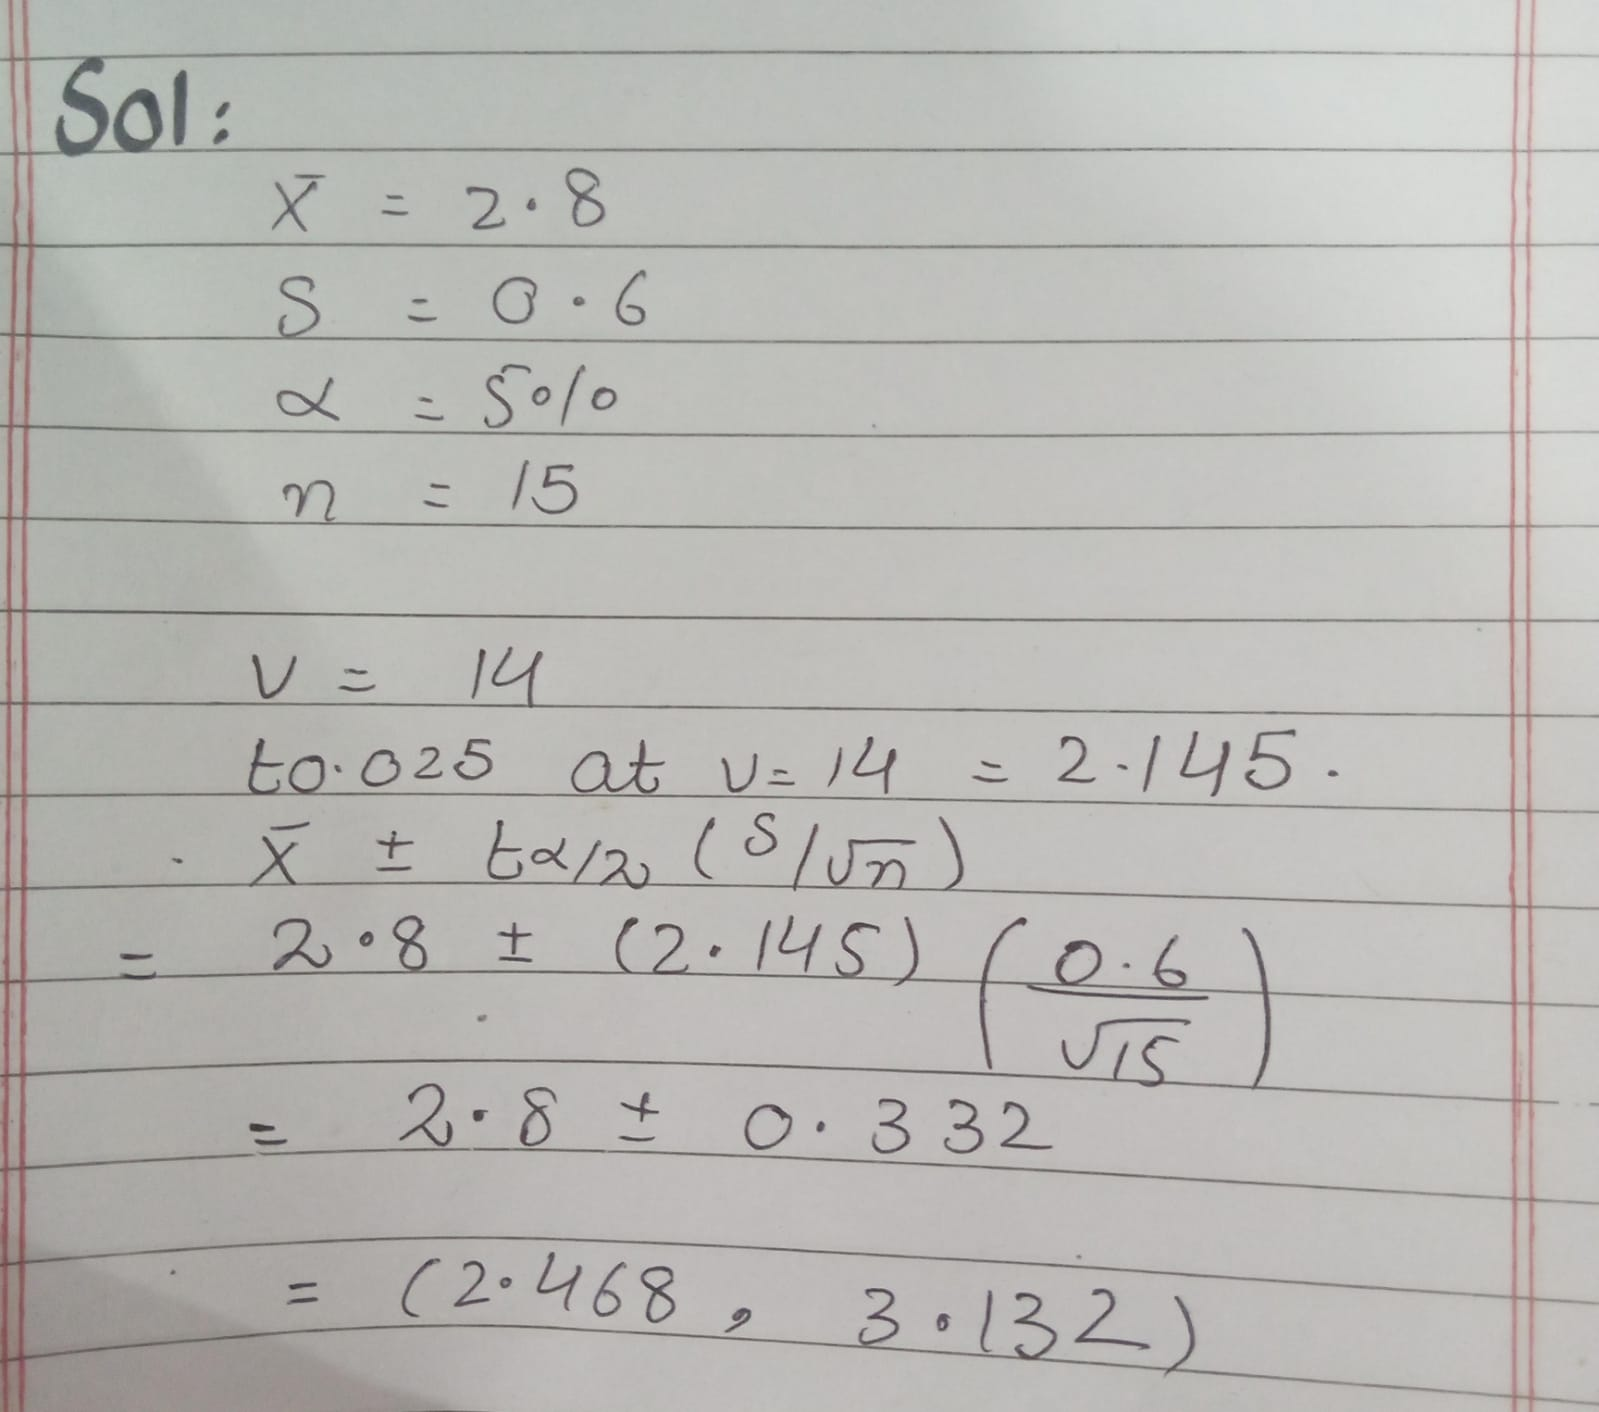 Sol:
x̄ = 2.8
S = 0.6
α = 5%
n = 15
v = 14
t0.025 at v = 14 = 2.145.
x̄ ± tα/2 (S/√n)
= 2.8 ± (2.145) (0.6/√15)
= 2.8 ± 0.332
= (2.468, 3.132)